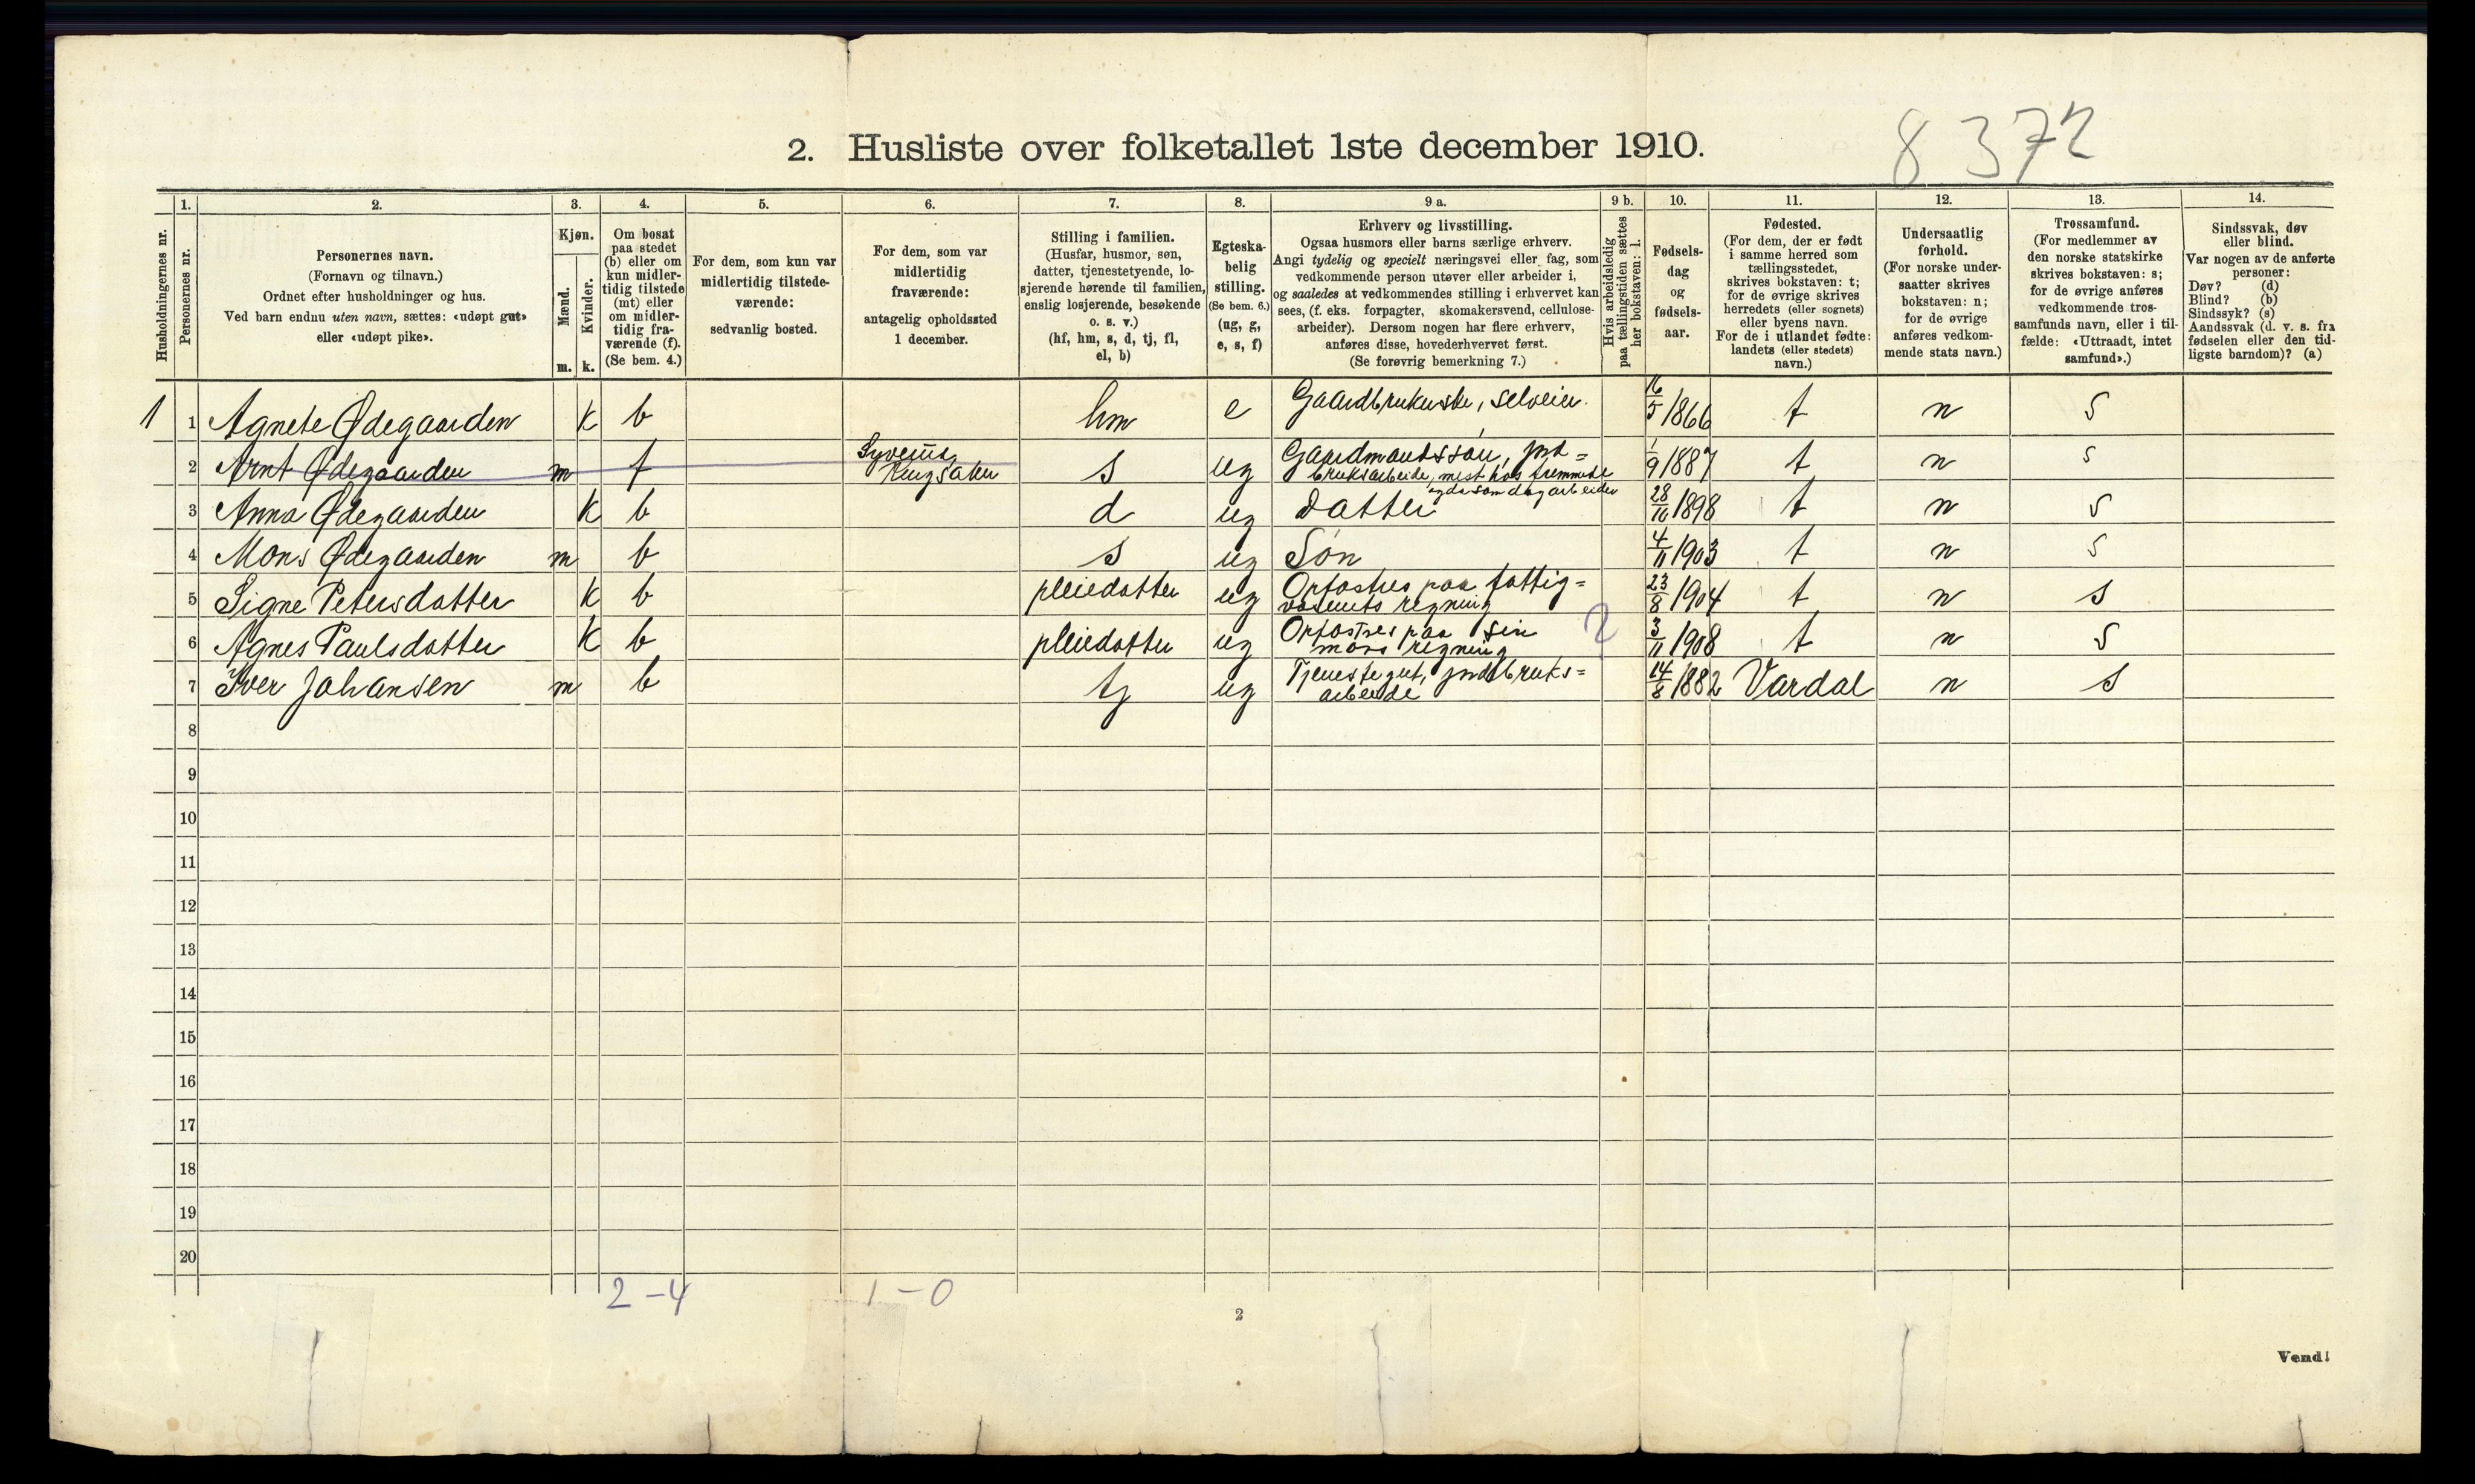 8 372
2. Husliste over folketallet 1ste december 1910.
1. 2. 3. 4. 5. 6. 7. 8. 9 a. 9 b. 10. 11. 12. 13. 14.
Husholdningernes nr.
Personernes nr.
Personernes navn.
(Fornavn og tilnavn.)
Ordnet efter husholdninger og hus.
Ved barn endnu uten navn, sættes: «udøpt gut»
eller «udøpt pike».
Kjøn.
Mænd.
Kvinder.
m. k.
Om bosat
paa stedet
(b) eller om
kun midler-
tidig tilstede
(mt) eller
om midler-
tidig fra-
værende (f).
(Se bem. 4.)
For dem, som kun var
midlertidig tilstede-
værende:
sedvanlig bosted.
For dem, som var
midlertidig
fraværende:
antagelig opholdssted
1 december.
Stilling i familien.
(Husfar, husmor, søn,
datter, tjenestetyende, lo-
sjerende hørende til familien,
enslig losjerende, besøkende
o. s. v.)
(hf, hm, s, d, tj, fl,
el, b)
Egteska-
belig
stilling.
(Se bem. 6.)
(ug, g,
e, s, f)
Erhverv og livsstilling.
Ogsaa husmors eller barns særlige erhverv.
Angi tydelig og specielt næringsvei eller fag, som
vedkommende person utøver eller arbeider i,
og saaledes at vedkommendes stilling i erhvervet kan
sees, (f. eks. forpagter, skomakersvend, cellulose-
arbeider). Dersom nogen har flere erhverv,
anføres disse, hovederhvervet først.
(Se forøvrig bemerkning 7.)
Hvis arbeidsledig
paa tællingstiden sættes
her bokstaven: l.
Fødsels-
dag
og
fødsels-
aar.
Fødested.
(For dem, der er født
i samme herred som
tællingsstedet,
skrives bokstaven: t;
for de øvrige skrives
herredets (eller sognets)
eller byens navn.
For de i utlandet fødte:
landets (eller stedets)
navn.)
Undersaatlig
forhold.
(For norske under-
saatter skrives
bokstaven: n;
for de øvrige
anføres vedkom-
mende stats navn.)
Trossamfund.
(For medlemmer av
den norske statskirke
skrives bokstaven: s;
for de øvrige anføres
vedkommende tros-
samfunds navn, eller i til-
fælde: «Uttraadt, intet
samfund».)
Sindssvak, døv
eller blind.
Var nogen av de anførte
personer:
Døv? (d)
Blind? (b)
Sindssyk? (s)
Aandssvak (d. v. s. fra
fødselen eller den tid-
ligste barndom)? (a)
1 1 Agnete Ødegaarden k b hm e Gaardbrukerske, selveier. 16/5 1866 t n s
2 Arnt Ødegaarden m f s ug Gaardmandssøn, jord=
bruksarbeide, mest hos fremmede
som dagarbeider 1/9 1887 t n s
3 Anna Ødegaarden k b d ug Datter 28/10 1898 t n s
4 Mons Ødegaarden m b s ug Søn 4/11 1903 t n s
5 Signe Petersdatter k b pleiedatter ug Opfostres paa fattig=
væsenets regning 23/8 1904 t n s
6 Agnes Paulsdatter k b pleiedatter ug Opfostres paa sin
mors regning 2 3/11 1908 t n s
7 Iver Johansen m b tj ug Tjenestegut, jordbruks=
arbeide 14/8 1882 Vardal n s
8
9
10
11
12
13
14
15
16
17
18
19
20
2 – 4 1 – 0
2
Vend!